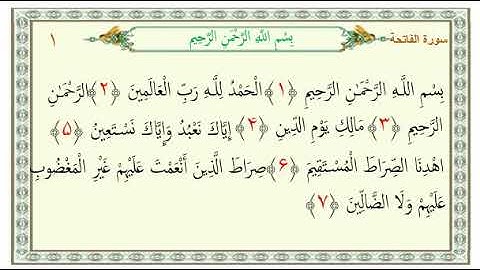 سورة الفاتحة بِسْمِ اللَّهِ الرَّحْمَٰنِ الرَّحِيمِ ١
بِسْمِ اللَّـهِ الرَّحْمَـٰنِ الرَّحِيمِ ﴿١﴾ الْحَمْدُ لِلَّـهِ رَبِّ الْعَالَمِينَ ﴿٢﴾ الرَّحْمَـٰنِ
الرَّحِيمِ ﴿٣﴾ مَالِكِ يَوْمِ الدِّينِ ﴿٤﴾ إِيَّاكَ نَعْبُدُ وَإِيَّاكَ نَسْتَعِينُ ﴿٥﴾
اهْدِنَا الصِّرَاطَ الْمُسْتَقِيمَ ﴿٦﴾ صِرَاطَ الَّذِينَ أَنْعَمْتَ عَلَيْهِمْ غَيْرِ الْمَغْضُوبِ
عَلَيْهِمْ وَلَا الضَّالِّينَ ﴿٧﴾